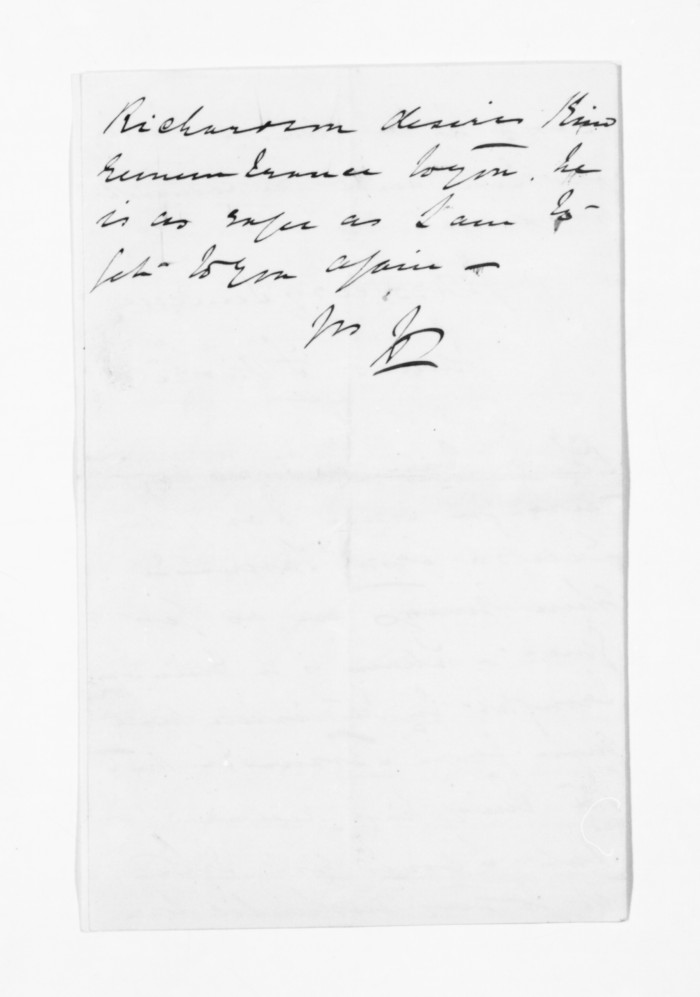 Richardson desires Kind
rememberance to you. he
is as eager as I am to
get to you again —